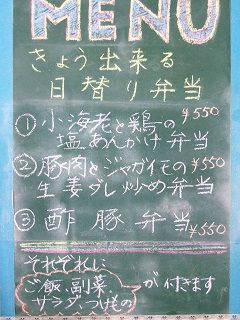 MENU
きょう出来る
日替り弁当
① 小海老と鶏の ¥550
塩あんかけ弁当
② 豚肉とジャガイモの ¥550
生姜ダレ炒め弁当
③ 酢豚弁当 ¥550
それぞれに
ご飯、副菜、
サラダ、つけもの
が付きます